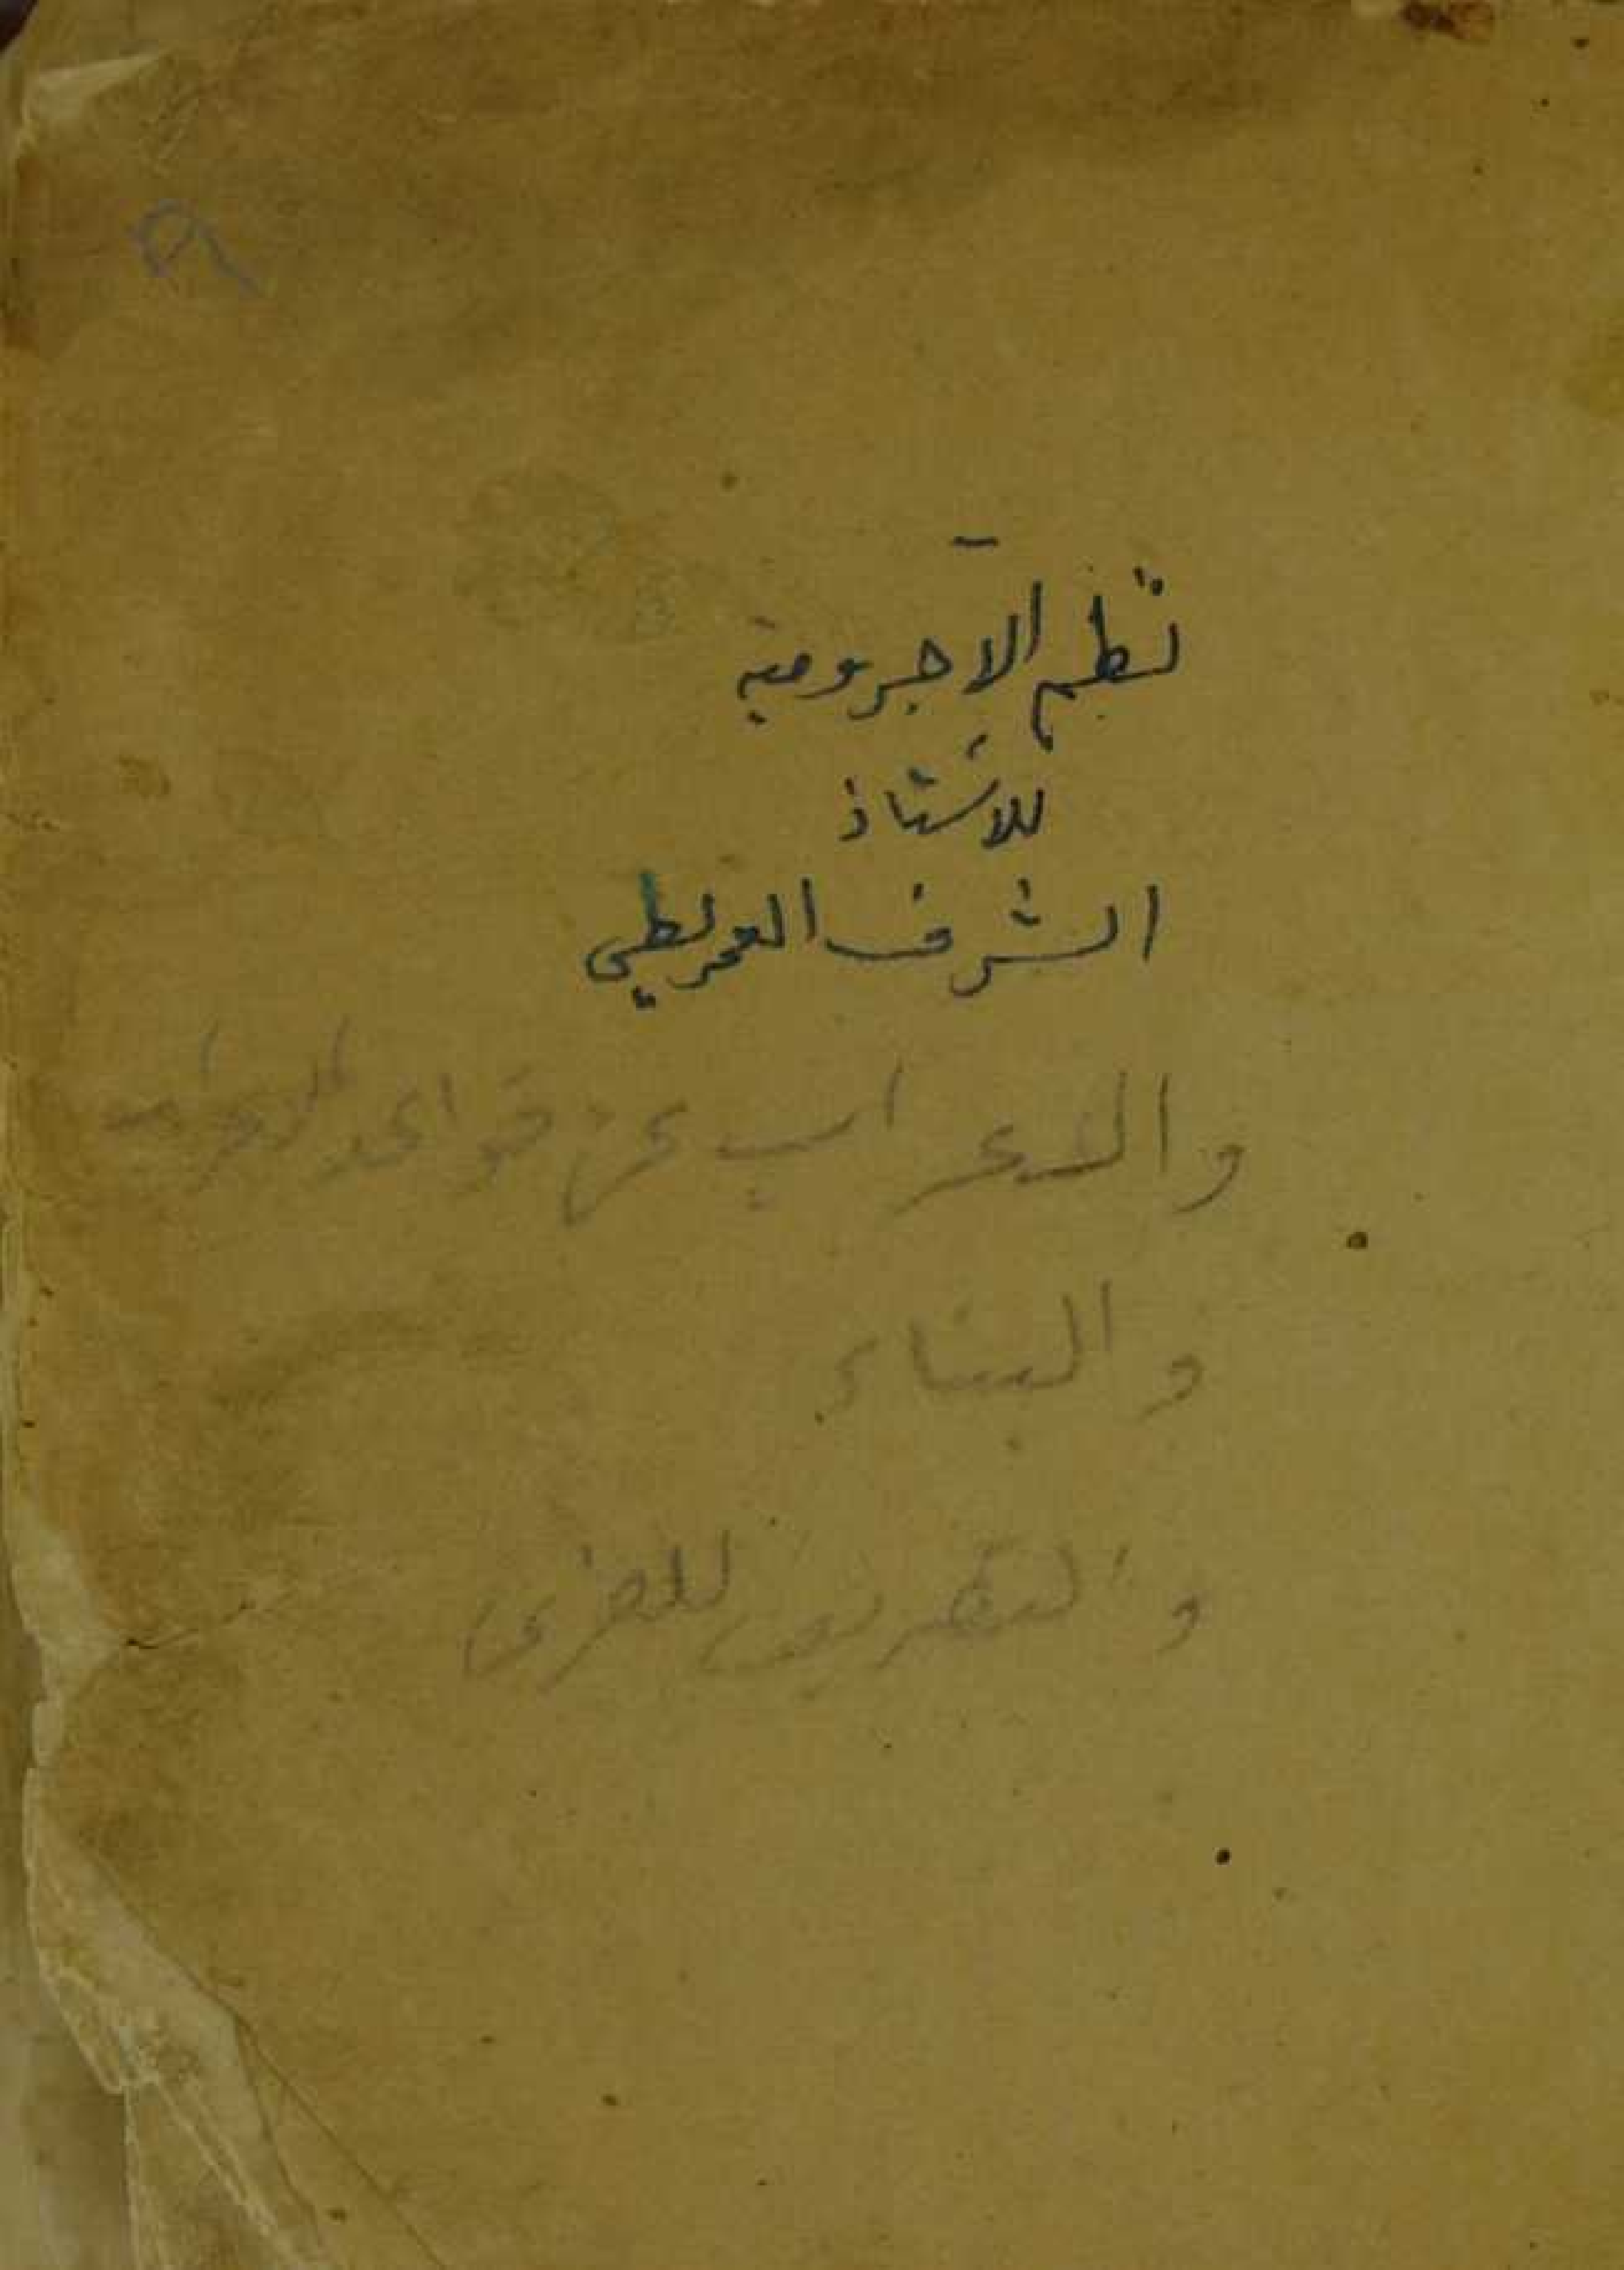 نظم الآجرومية
للاستاذ
الشرف العمريطي
والاعراب عن قواعد الاعراب
والبناء
والتصريف للعزى